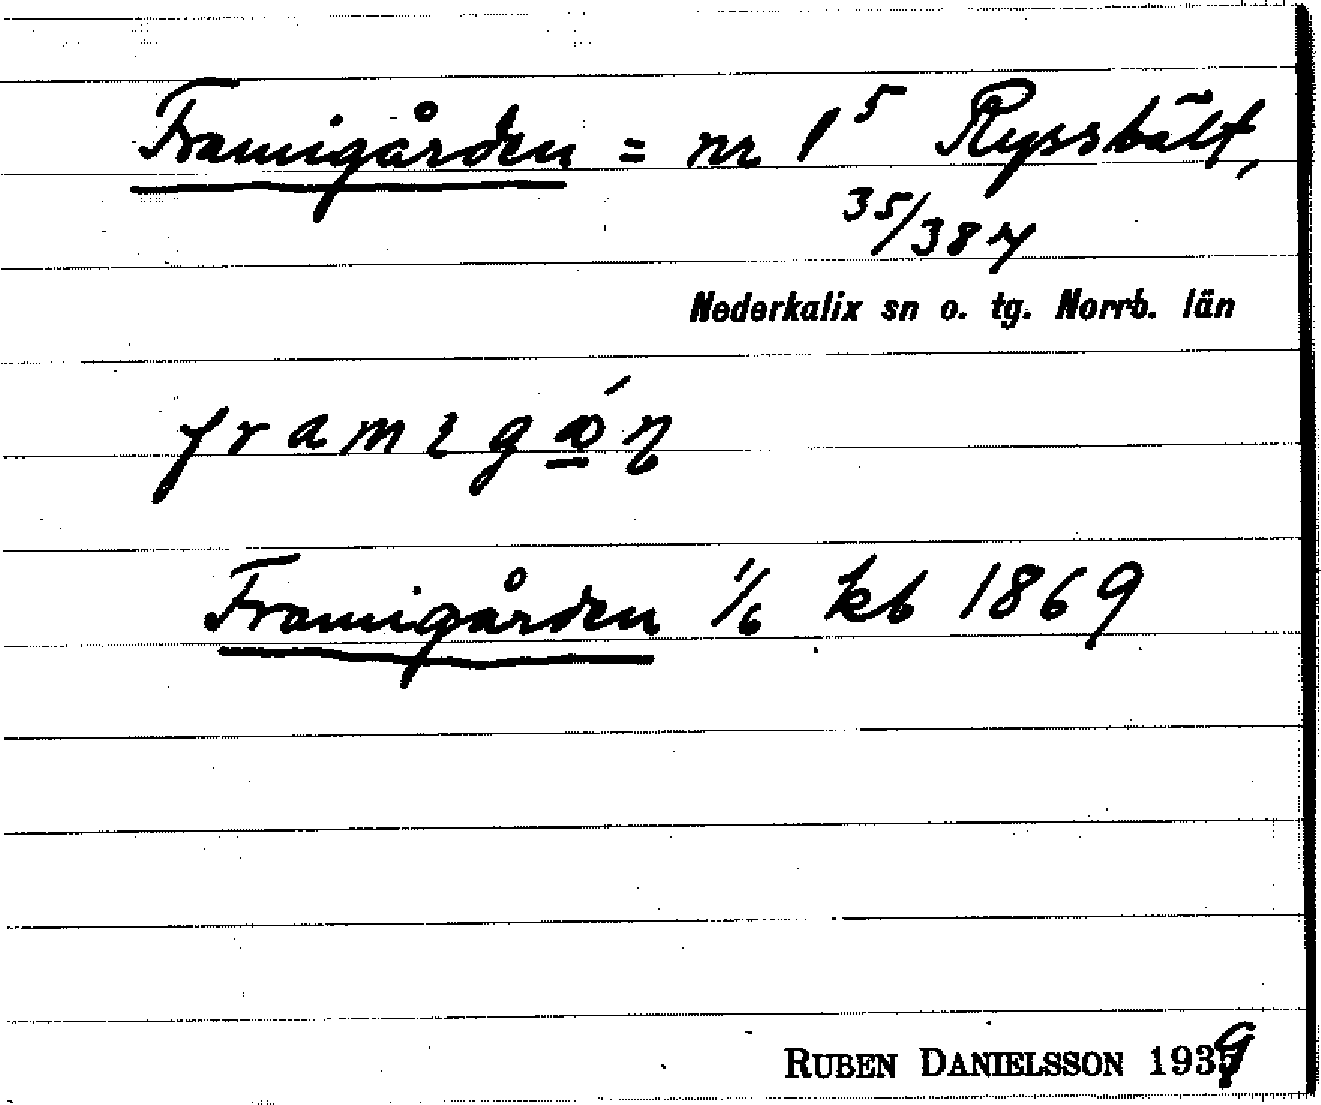 Framigården = nr 1⁵ Ryssbält,
35/387
Nederkalix sn o. tg. Norrb. län
Framigården 1/6 kb 1869
RUBEN DANIELSSON 1939